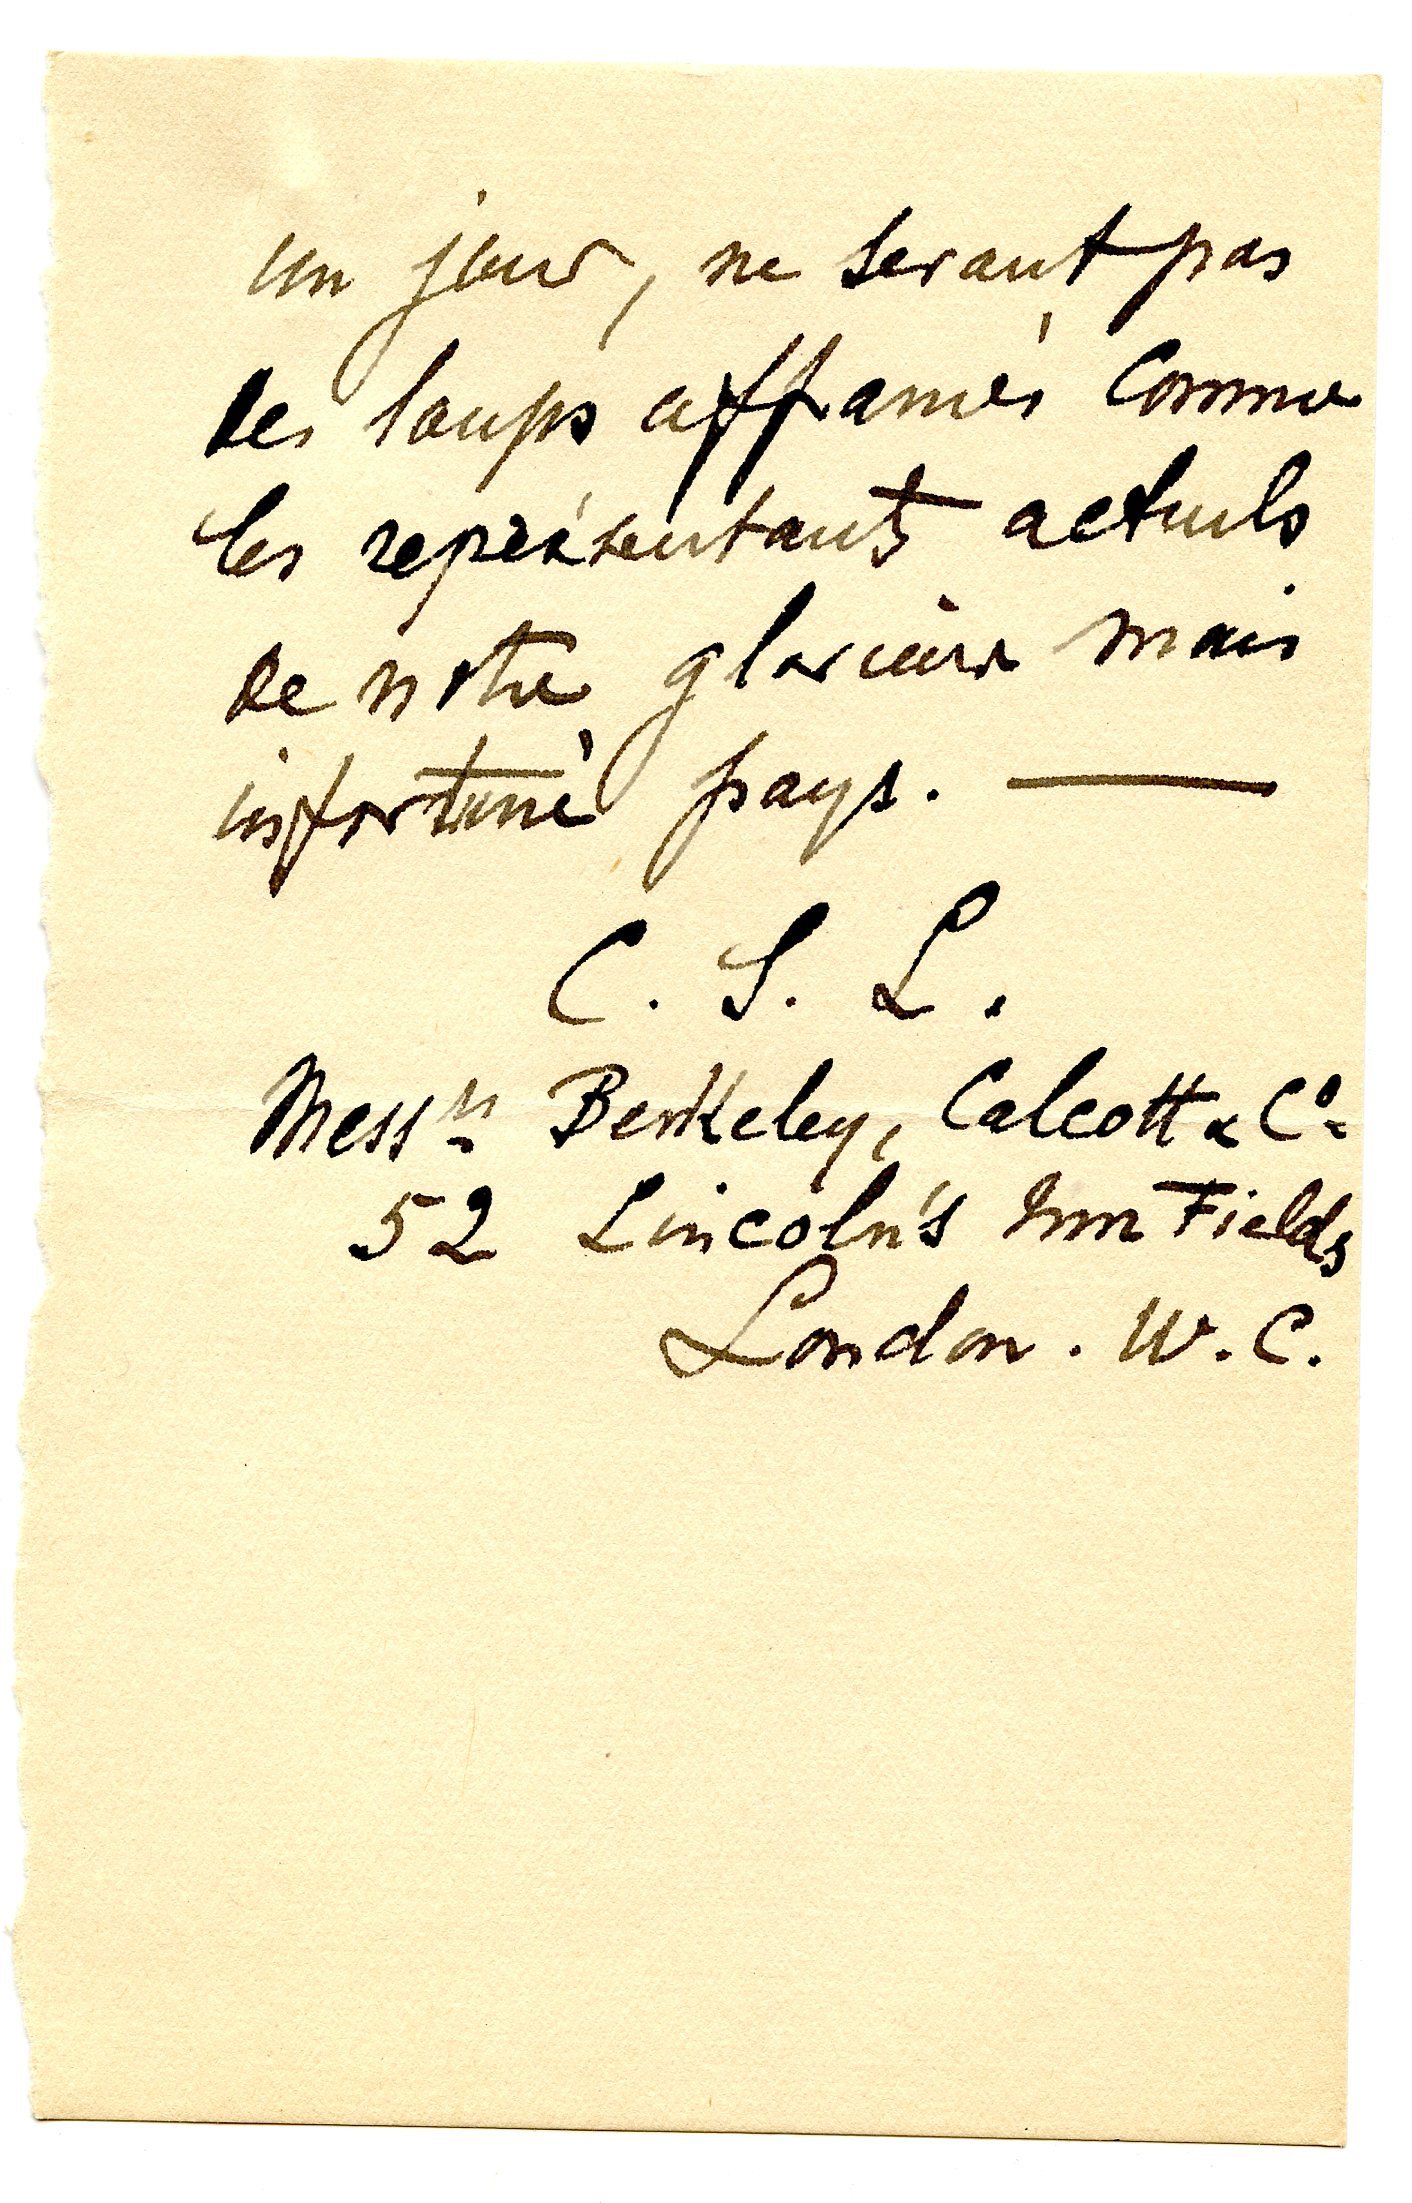 un jour, ne serant pas
des loups affamés comme
les représentants actuels
de notre glorieux mais
infortuné pays. —
C. S. L.
Messrs Berkeley, Calcott & Co
52 Lincoln's Inn Fields
London. W. C.